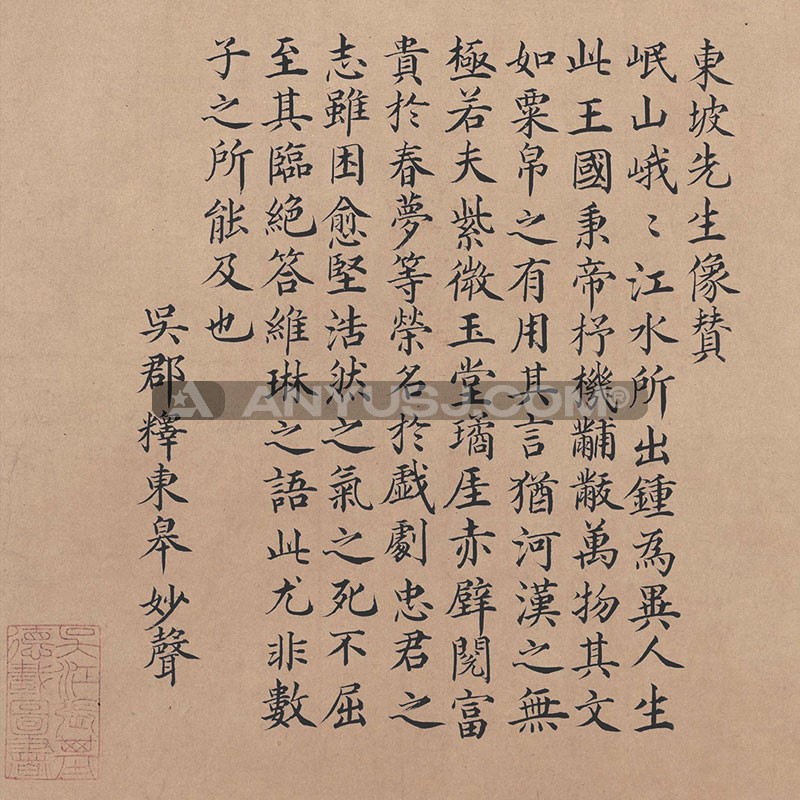 東坡先生像賛
岷山峨〻江水所出鍾為異人生
此王國秉帝杼機黼黻萬物其文
如粟帛之有用其言猶河漢之無
極若夫紫微玉堂瓊厓赤壁閱富
貴於春夢等榮名於戲劇忠君之
志雖困愈堅浩然之氣之死不屈
至其臨絶答維琳之語此尤非數
子之所能及也
吳郡釋東皋妙聲
ANYUSJ.COM